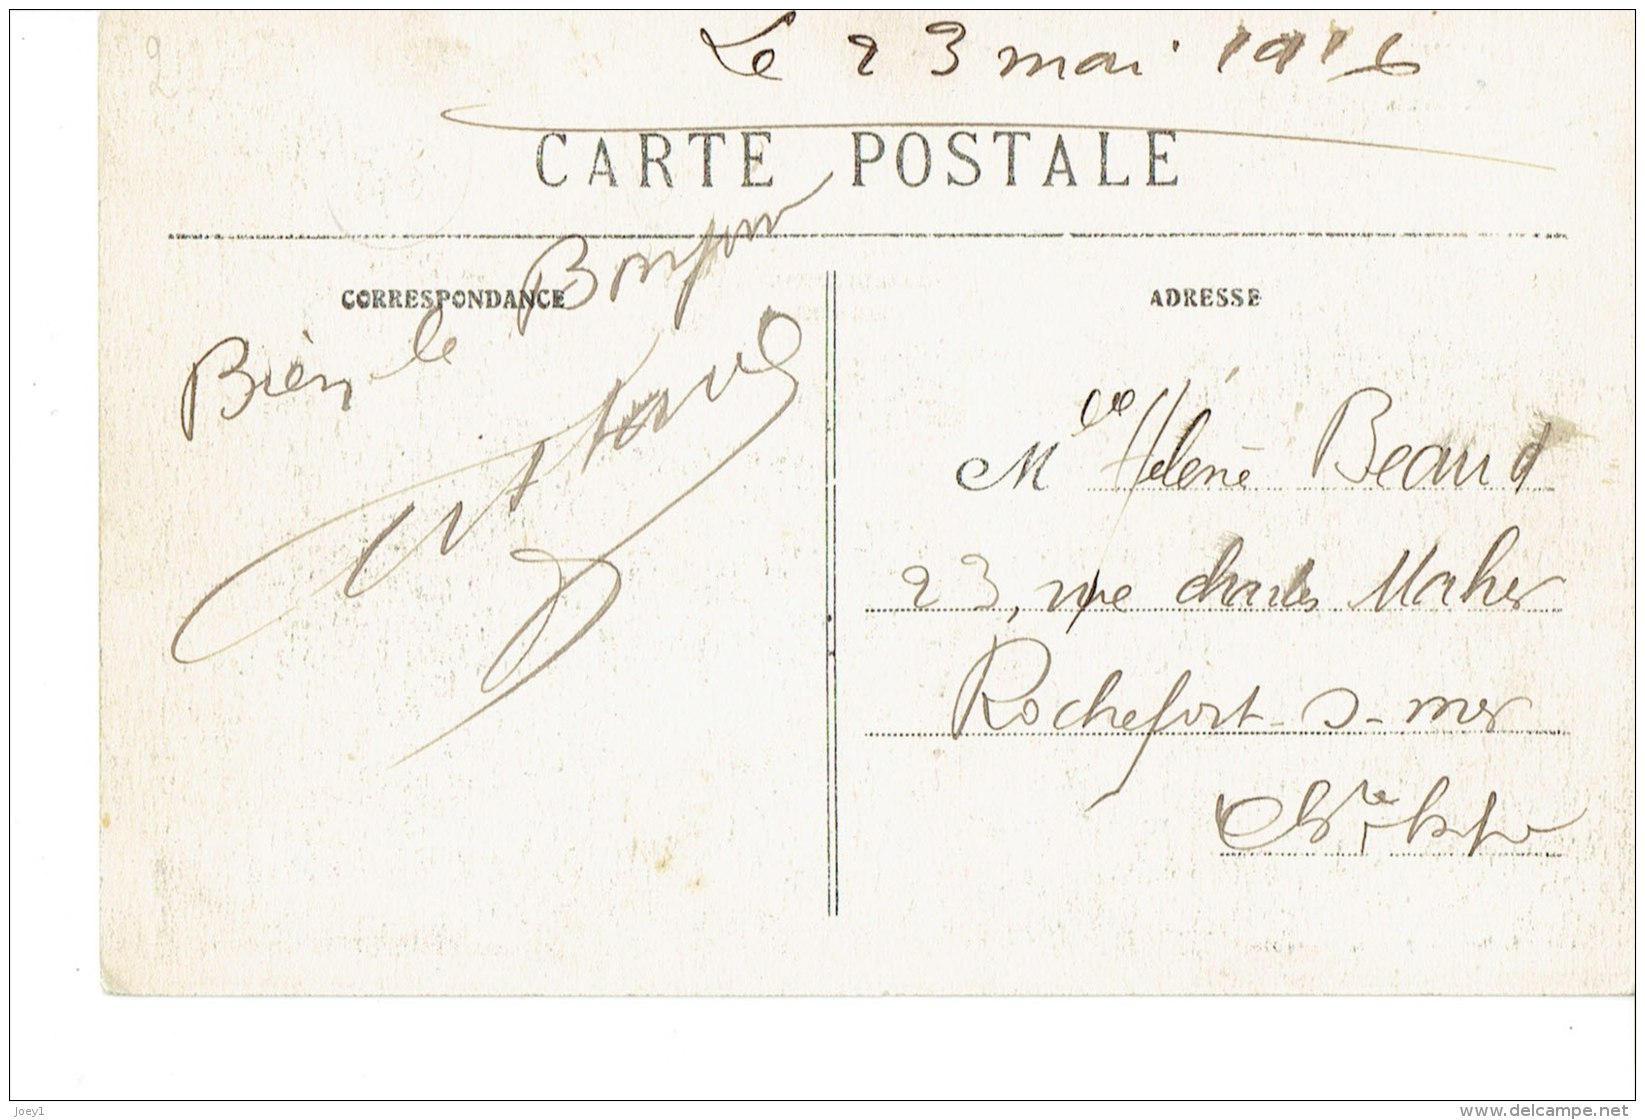 2
Le 23 mai 1916
CARTE POSTALE
CORRESPONDANCE
ADRESSE
Bien le Bonjour
Mlle Hélène Beaud
23, rue charles Maher
Rochefort-s-mer
Ch^re Infre
joey1
www.delcampe.net